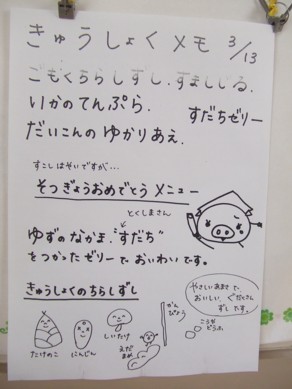 きゅうしょくメモ 3/13
ごもくちらしずし.すましじる.
いかのてんぷら.
すだちゼリー
だいこんのゆかりあえ.
すこしはやいですが…
そつぎょうおめでとうメニュー
とくしまさん
ゆずのなかま."すだち"
をつかったゼリーでおいわいです。
きゅうしょくのちらしずし
たけのこ
にんじん
しいたけ
えだまめ
かんぴょう
こうやどうふ
やさしいあまさで、
おいしい、ぐだくさん
ずしです。